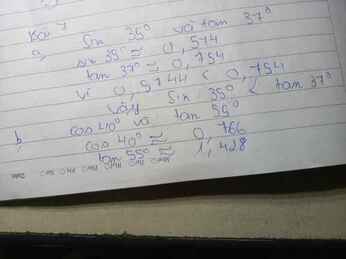 Bài 7
a, sin 35° và tan 37°
sin 35° ≈ 0,574
tan 37° ≈ 0,754
Vì 0,5744 < 0,754
Vậy sin 35° < tan 37°
b, cos 40° và tan 55°
cos 40° ≈ 0,766
tan 55° ≈ 1,428